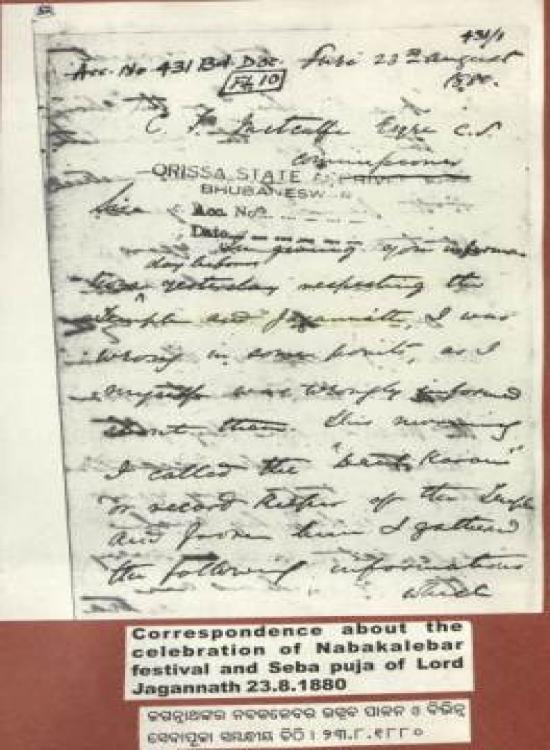 52
431/1
Acc. No 431 Bd. Doc. Puri 23rd August
Fl. 10
1880.
C. F. Metcalfe Esqre C.S.
Commissioner
ORISSA STATE ARCHIVES
BHUBANESWAR
Sir
Acc. No.
Date
In giving you informa
day before
tion yesterday respecting the
Temple and Jagannath, I was
wrong in some points, as I
myself was wrongly informed
about them. This morning
I called the "Karan"
or record keeper of the Temple
and from him I gathered
the following informations
which
Correspondence about the
celebration of Nabakalebar
festival and Seba puja of Lord
Jagannath 23.8.1880
ଜଗନ୍ନାଥଙ୍କର ନବକଳେବର ଉତ୍ସବ ପାଳନ ଓ ବିଭିନ୍ନ
ସେବାପୂଜା ସମ୍ବନ୍ଧୀୟ ଚିଠି । ୨୩.୮.୧୮୮୦